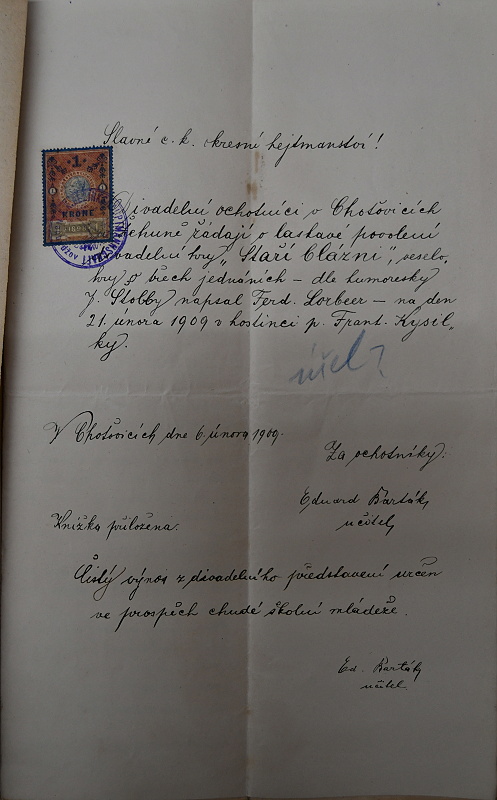 Slavné c. k. okresní hejtmanství!
1
KRONE
1898
Divadelní ochotníci v Chotovicích
žádají o laskavé povolení
divadelní hry „Staří blázni", veselo-
hry o třech jednáních – dle humoresky
J. Stolby napsal Ferd. Lorbeer – na den
21. února 1909 v hostinci p. Frant. Kysil-
ky.
účel?
V Chotovicích dne 6. února 1909.
Za ochotníky:
Eduard Barták,
učitel,
Knížka přiložena.
Čistý výnos z divadelního představení určen
ve prospěch chudé školní mládeže.
Ed. Barták,
učitel